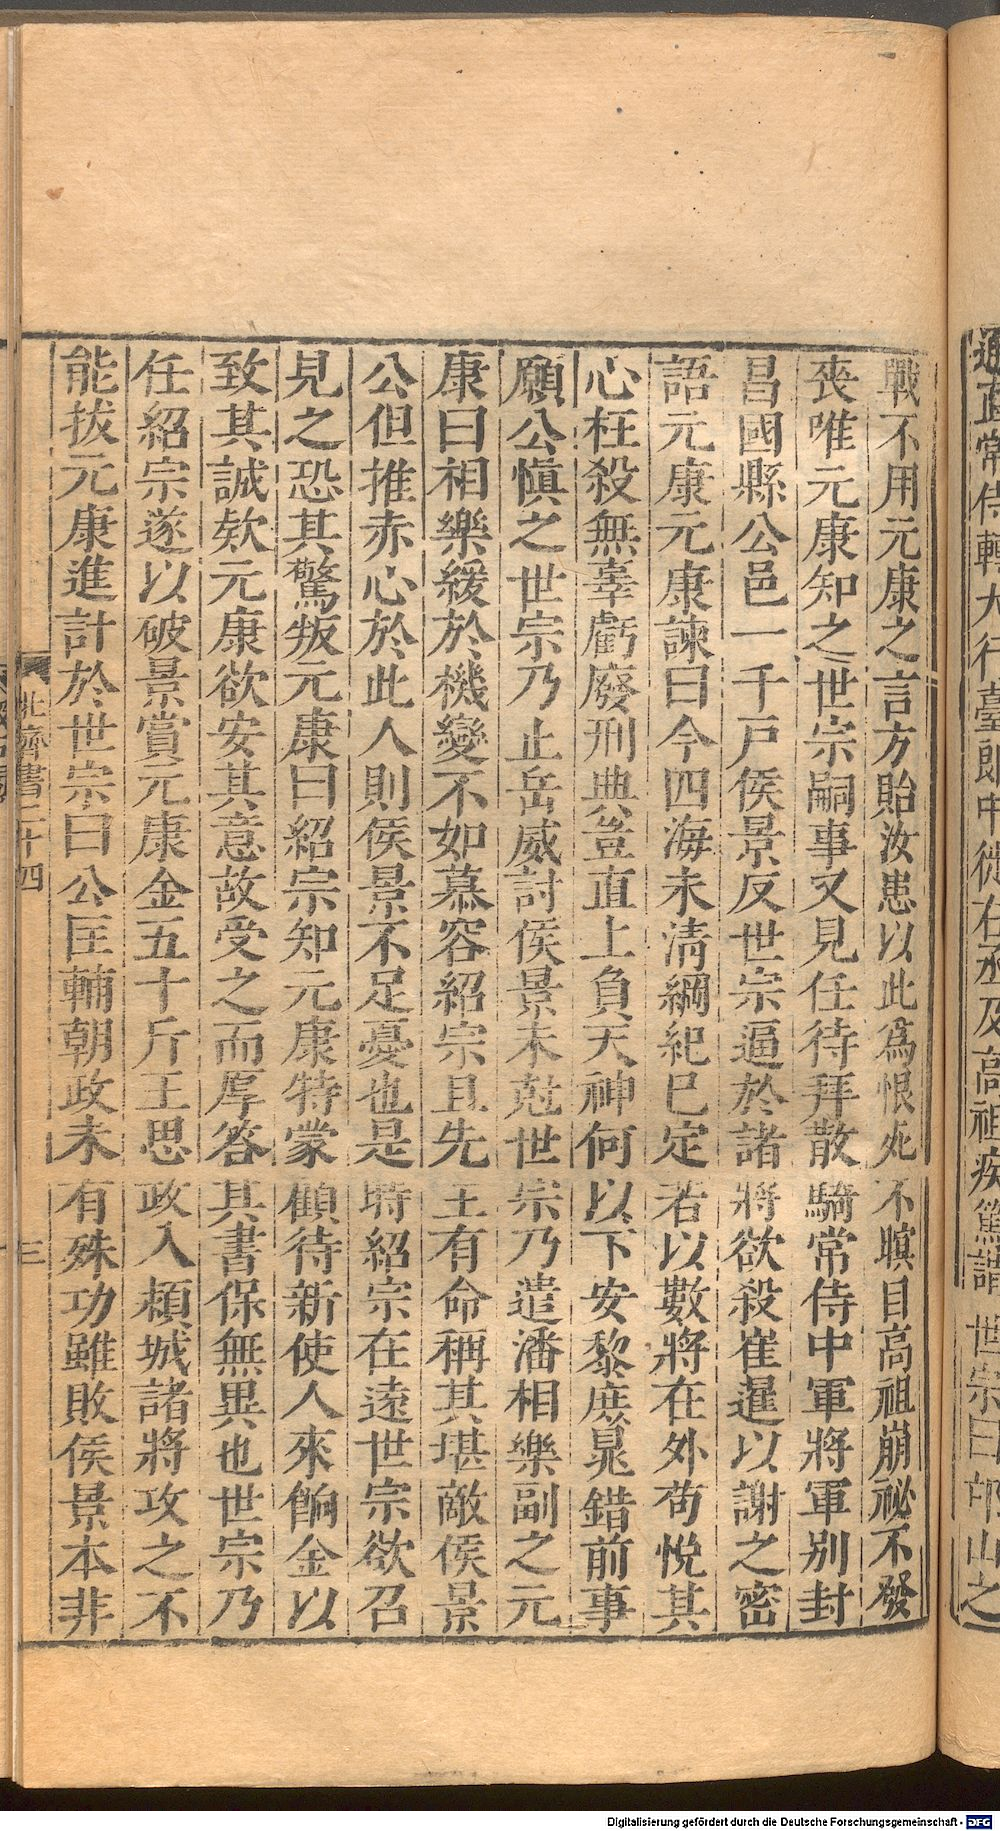 通直常侍轉大行臺郎中徙右丞及高祖疾篤謂世宗曰邙山之
戰不用元康之言方貽汝患以此為恨死不瞑目高祖崩祕不發
喪唯元康知之世宗嗣事又見任待拜散騎常侍中軍將軍別封
昌國縣公邑一千戸侯景反世宗逼於諸將欲殺崔暹以謝之密
語元康元康諫曰今四海未清綱紀已定若以數將在外苟悅其
心枉殺無辜虧廢刑典豈直上負天神何以下安黎庶晁錯前事
願公慎之世宗乃止岳威討侯景未尅世宗乃遣潘相樂副之元
康曰相樂緩於機變不如慕容紹宗且先王有命稱其堪敵侯景
公但推赤心於此人則侯景不足憂也是時紹宗在遠世宗欲召
見之恐其驚叛元康曰紹宗知元康特蒙顧待新使人來餉金以
致其誠欵元康欲安其意故受之而厚答其書保無異也世宗乃
任紹宗遂以破景賞元康金五十斤王思政入潁城諸將攻之不
能拔元康進計於世宗曰公匡輔朝政未有殊功雖敗侯景本非
北齊書二十四
三
Digitalisierung gefördert durch die Deutsche Forschungsgemeinschaft - DFG